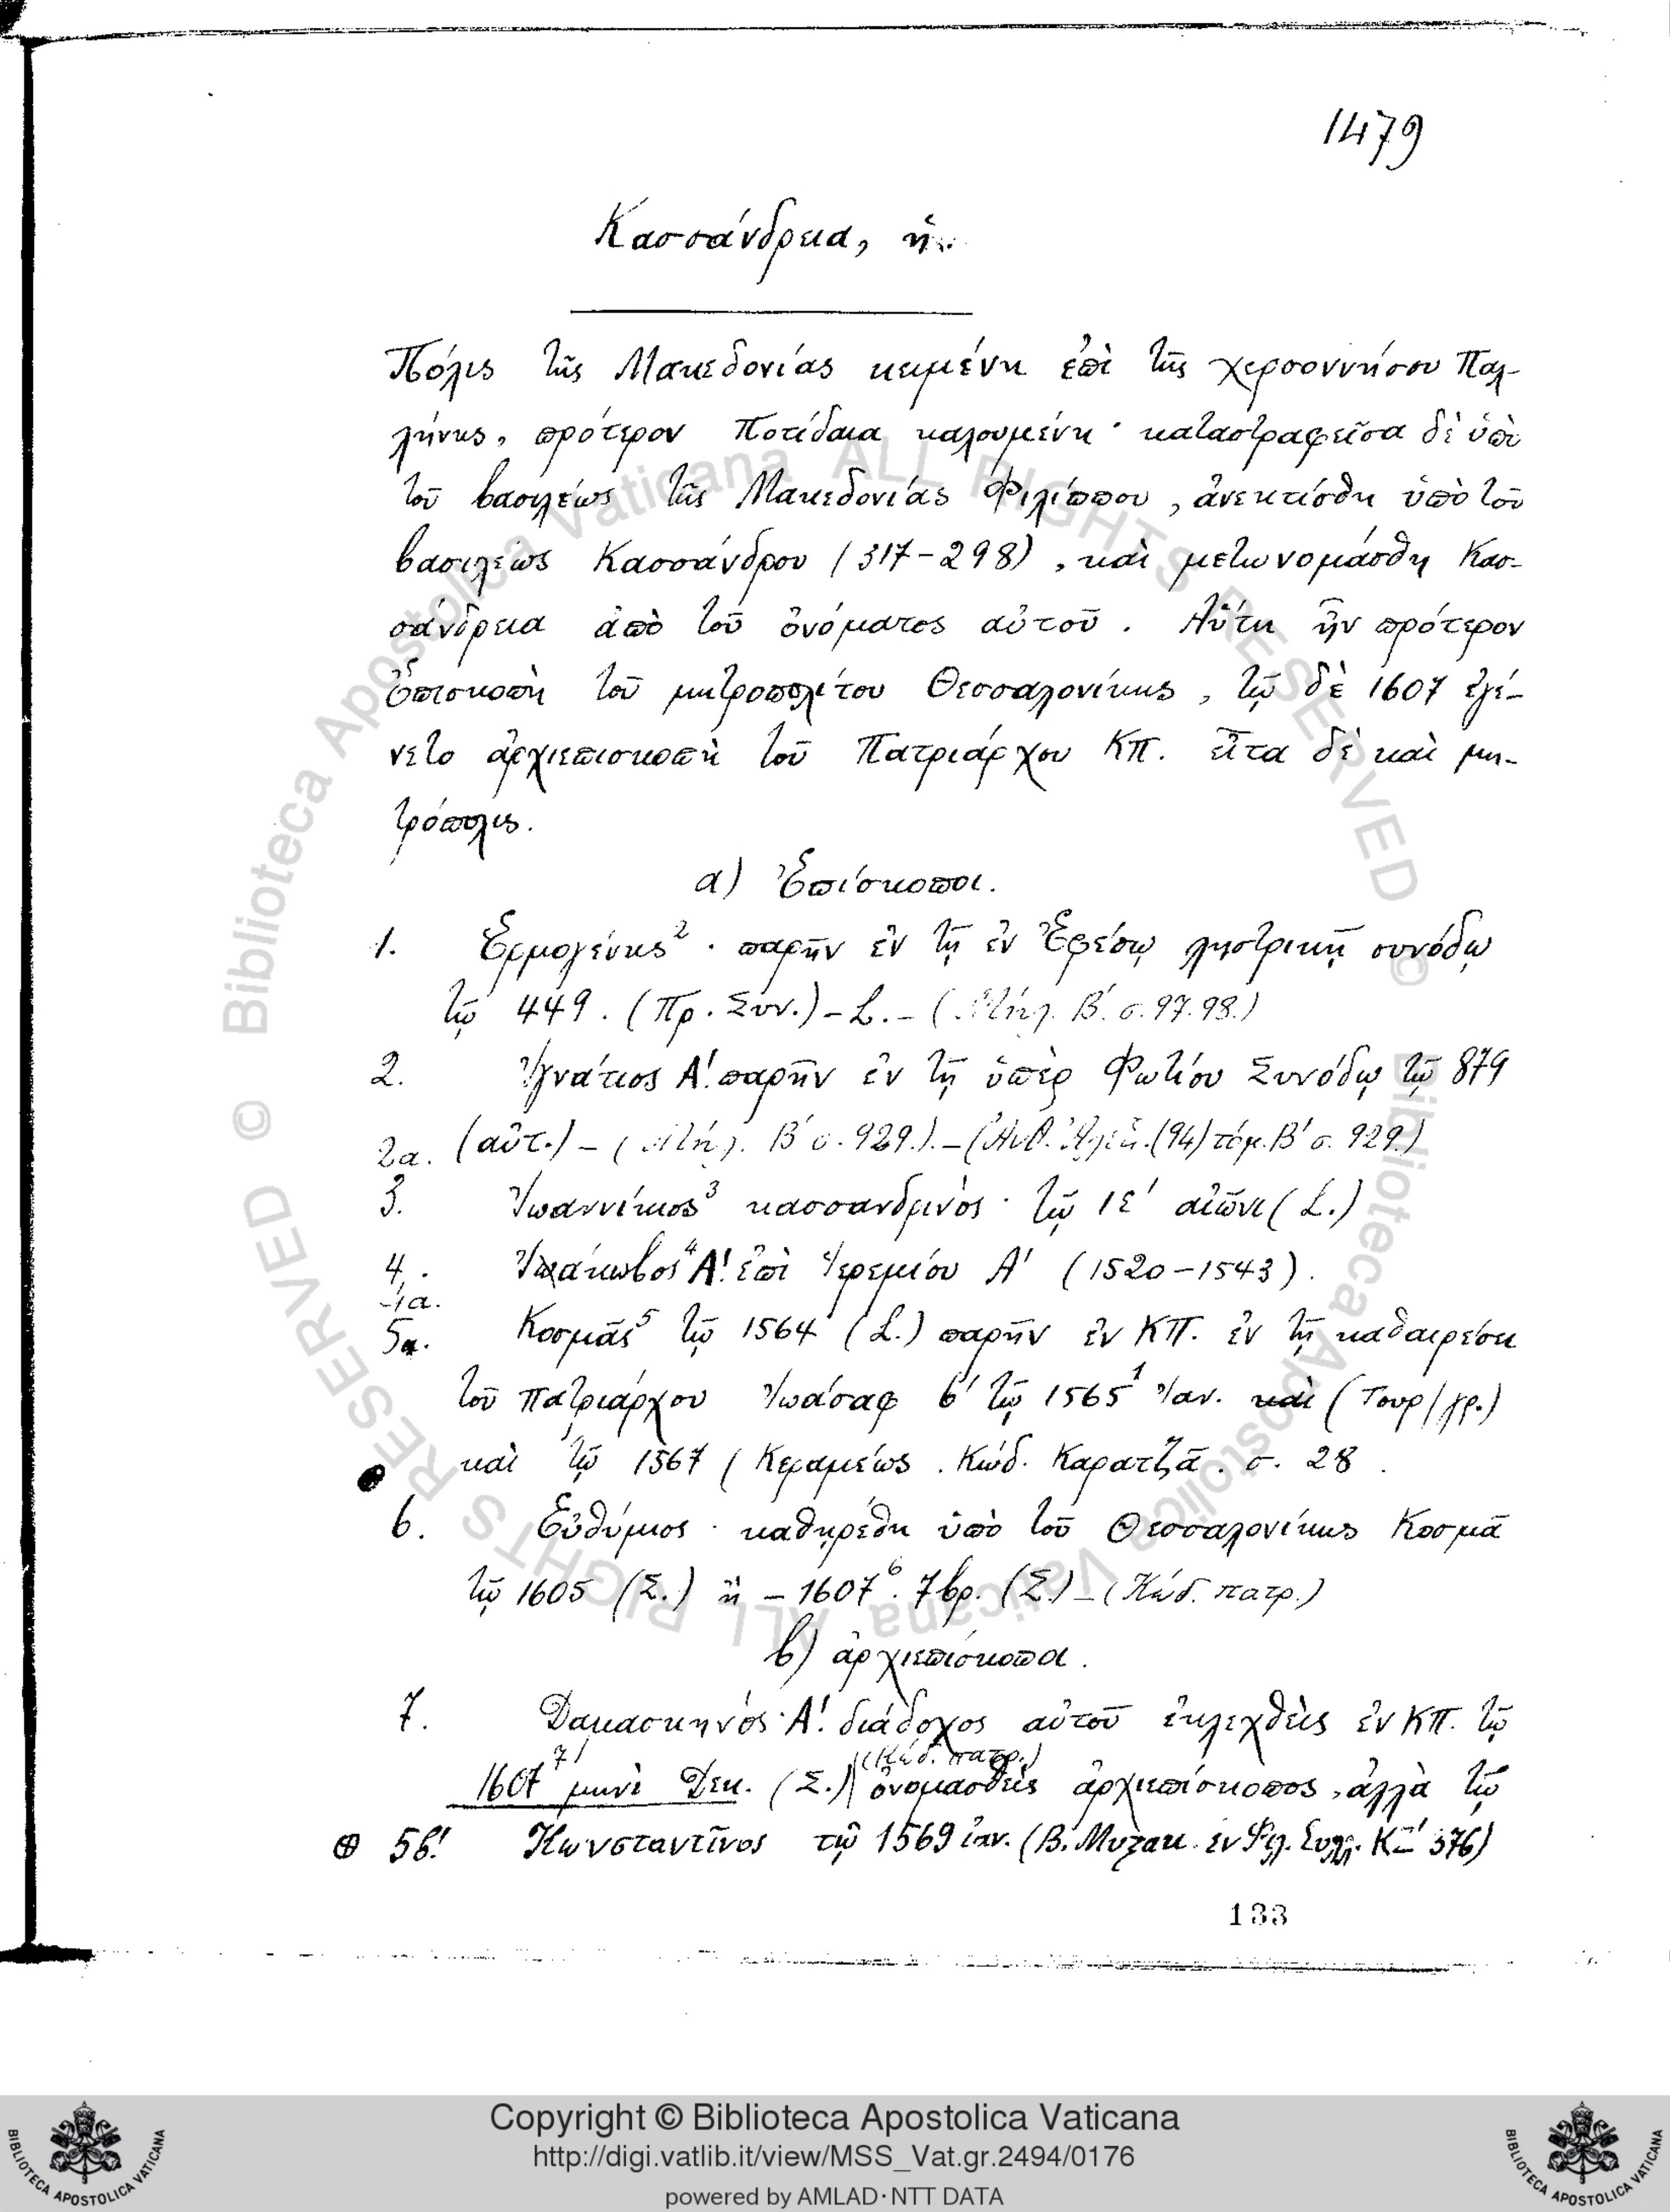 1479
Κασσάνδρεια, ἡ.
Πόλις τῆς Μακεδονίας κειμένη ἐπὶ τῆς χερσοννήσου Παλ-
λήνης, πρότερον Ποτίδαια καλουμένη· καταστραφεῖσα δὲ ὑπὸ
τοῦ βασιλέως τῆς Μακεδονίας Φιλίππου, ἀνεκτίσθη ὑπὸ τοῦ
βασιλέως Κασσάνδρου (317-298), καὶ μετωνομάσθη Κασ-
σάνδρεια ἀπὸ τοῦ ὀνόματος αὐτοῦ. Αὕτη ἦν πρότερον
ἐπισκοπὴ τοῦ μητροπολίτου Θεσσαλονίκης, τῷ δὲ 1607 ἐγέ-
νετο ἀρχιεπισκοπὴ τοῦ Πατριάρχου ΚΠ. εἶτα δὲ καὶ μη-
τρόπολις.
α) Ἐπίσκοποι.
1. Ἑρμογένης² · παρῆν ἐν τῇ ἐν Ἐφέσῳ λῃστρικῇ συνόδῳ
τῷ 449. (Πρ. Συν.) - L. - ( Β΄. σ. 97. 98.)
2. Ἰγνάτιος Α! παρῆν ἐν τῇ ὑπὲρ Φωτίου Συνόδῳ τῷ 879
2α. (αὐτ.) - ( Β΄ σ. 929.). - (Ἀνθ. Ἀλεξ. (94) τόμ. Β΄ σ. 929.)
3. Ἰωαννίκιος³ κασσανδρινὸς· τῷ ΙΕ΄ αἰῶνι (L.)
4. Ἰάκωβος⁴ Α! ἐπὶ Ἱερεμίου Α΄ (1520-1543).
4α.
5α. Κοσμᾶς⁵ τῷ 1564 (L.) παρῆν ἐν ΚΠ. ἐν τῇ καθαιρέσει
τοῦ πατριάρχου Ἰωάσαφ β΄ τῷ 1565¹ Ἰαν. καὶ (Τουρ/γρ.)
καὶ τῷ 1567 (Κεραμέως. Κώδ. Καρατζᾶ. σ. 28.
6. Εὐθύμιος· καθῃρέθη ὑπὸ τοῦ Θεσσαλονίκης Κοσμᾶ
τῷ 1605 (Σ.) ἢ - 1607⁶. 7βρ. (Σ.) - (Κώδ. πατρ.)
β) ἀρχιεπίσκοποι.
7. Δαμασκηνός· Α! διάδοχος αὐτοῦ ἐκλεχθεὶς ἐν ΚΠ. τῷ
(Κώδ. πατρ.)
1607⁷ μηνὶ Δεκ. (Σ.) ὀνομασθεὶς ἀρχιεπίσκοπος, ἀλλὰ τῷ
⊕ 5β! Κωνσταντῖνος τῷ 1569 ἰαν. (Β. Μυστακ. ἐν Φιλ. Συλλ. ΚΖ΄ 376)
133
© Biblioteca Apostolica Vaticana ALL RIGHTS RESERVED
© Biblioteca Apostolica Vaticana ALL RIGHTS RESERVED
Copyright © Biblioteca Apostolica Vaticana
http://digi.vatlib.it/view/MSS_Vat.gr.2494/0176
powered by AMLAD·NTT DATA
BIBLIOTECA APOSTOLICA VATICANA
BIBLIOTECA APOSTOLICA VATICANA